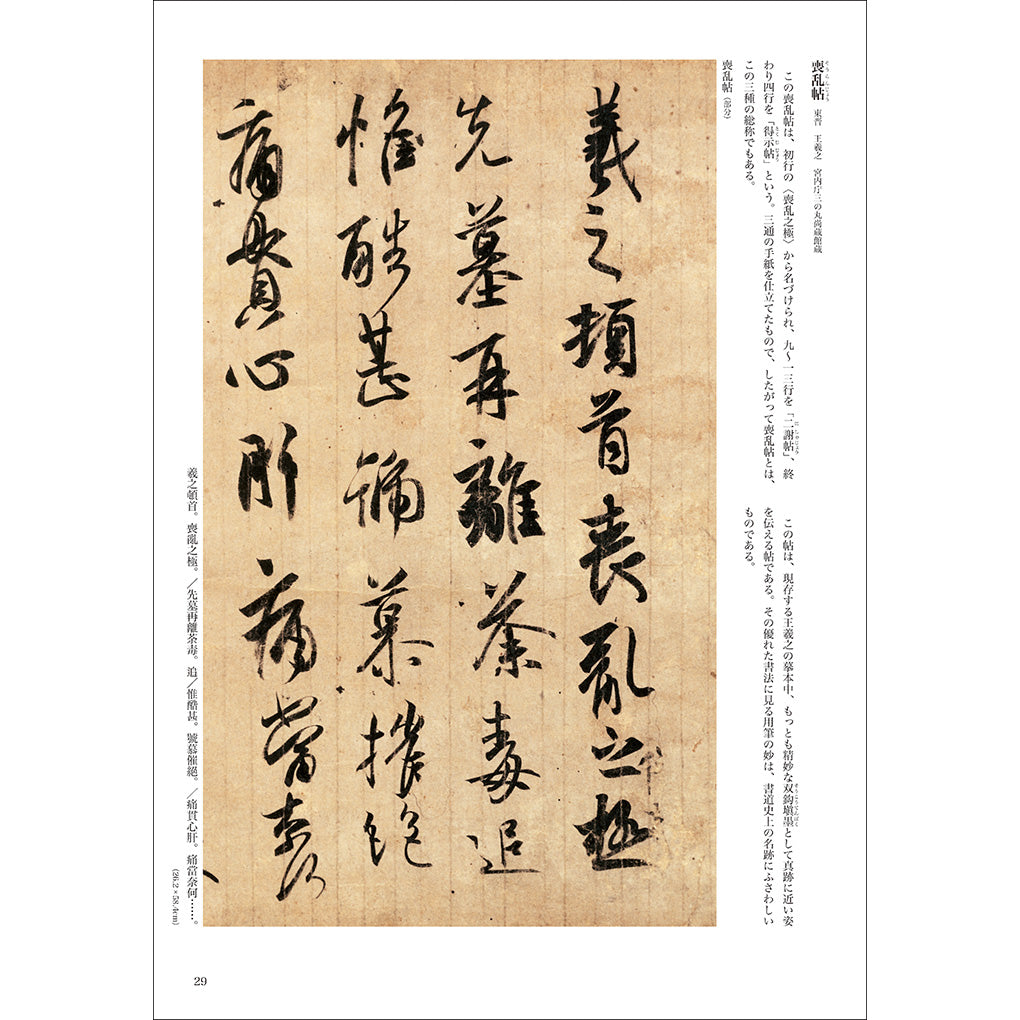 喪乱帖 東晋 王羲之 宮内庁三の丸尚蔵館蔵
そうらんじょう
この喪乱帖は、初行の〈喪乱之極〉から名づけられ、九〜一三行を「二謝帖」、終
にしゃじょう
わり四行を「得示帖」という。三通の手紙を仕立てたもので、したがって喪乱帖とは、
とくじじょう
この三種の総称でもある。
この帖は、現存する王羲之の摹本中、もっとも精妙な双鉤塡墨として真跡に近い姿
そうこうてんぼく
を伝える帖である。その優れた書法に見る用筆の妙は、書道史上の名跡にふさわしい
ものである。
喪乱帖(部分)
羲之頓首喪亂之極
先墓再離荼毒追
惟酷甚號慕摧絶
痛貫心肝痛當奈何
羲之頓首。喪亂之極。／先墓再離荼毒。追／惟酷甚。號慕催絕。／痛貫心肝。痛當奈何……。
(26.2×58.4cm)
29